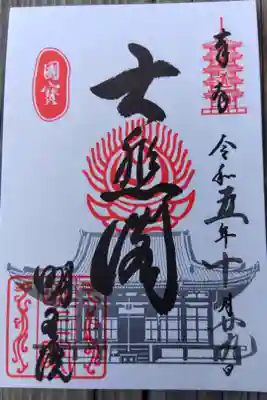 奉拝
令和五年十月廿九日
國寶
大悲閣
明王院